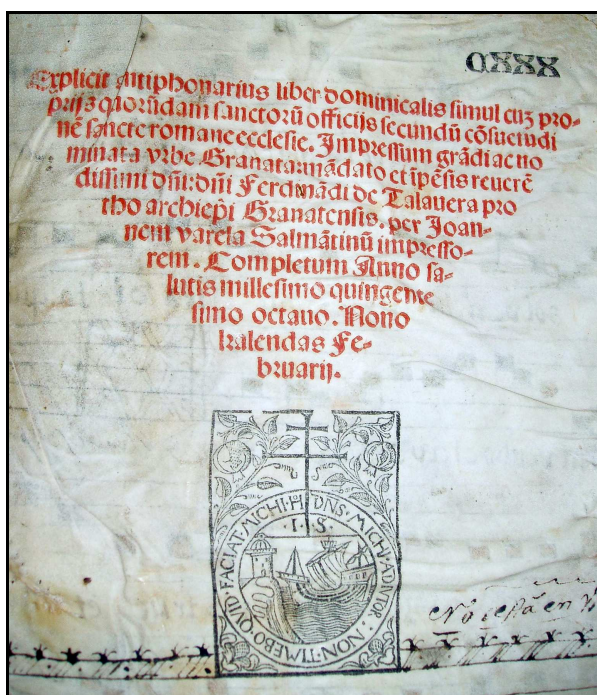 CXXX
Explicit antiphonarius liber dominicalis simul cuz pro-
prijs quorūdam sanctorū officijs secundū cōsuetudi
nē sancte romane ecclesie. Impressum grādi ac no
minata vrbe Granata: mādato et īpēsis reuerē
dissimi dn̄i: dn̄i Ferdināđi de Talauera pro
tho archiep̄i Granatensis. per Joan-
nem varela Salmātinū impresso-
rem. Completum Anno sa-
lutis millesimo quingente
simo octauo. Nono
kalendas Fe-
bruarij.
I. S.
DNS. MICHI. ADIVTOR. NON. TIMEBO. QVID. FACIAT. MICHI. HO